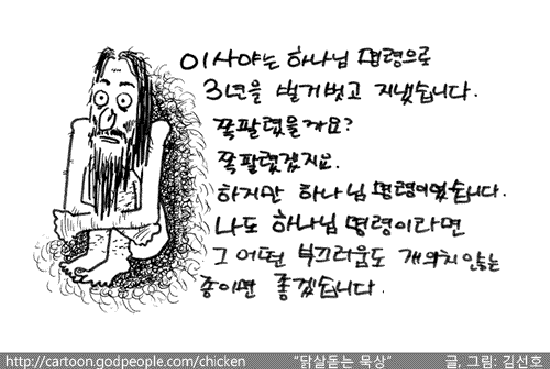 이사야는 하나님 명령으로
3년을 벌거벗고 지냈습니다.
쪽팔렸을까요?
쪽팔렸겠지요.
하지만 하나님 명령이었습니다.
나도 하나님 명령이라면
그 어떤 부끄러움도 개의치 않는
종이면 좋겠습니다.
http://cartoon.godpeople.com/chicken "닭살돋는 묵상" 글, 그림: 김선호